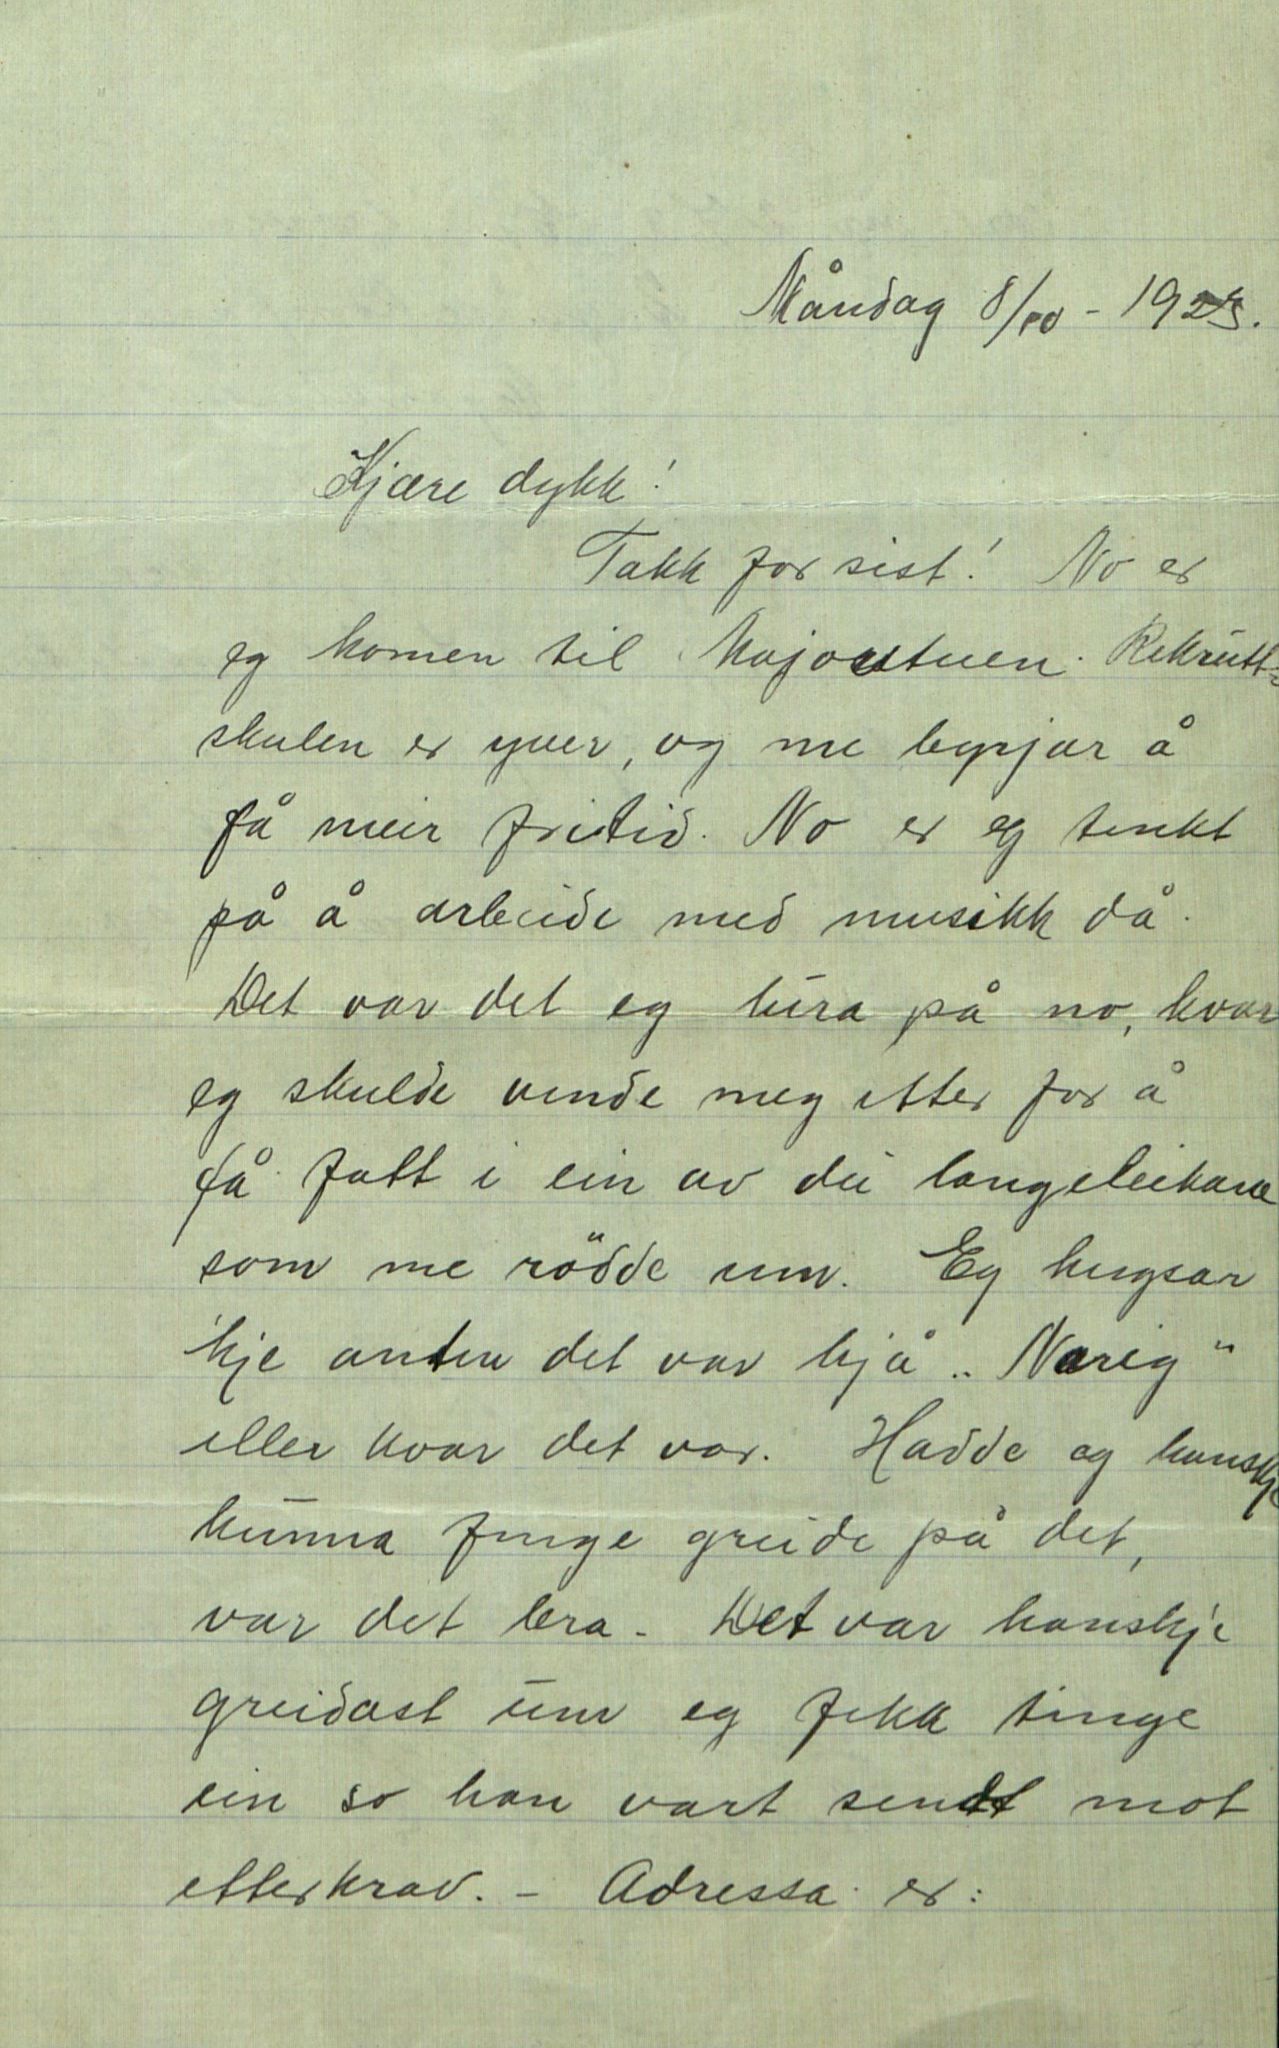 Måndag 8/10 - 1923.
Kjære dykk!
Takk for sist! No er
eg komen til Majorstuen. Rekrutt-
skulen er yver, og me byrjar å
få meir fritid. No er eg tenkt
på å arbeide med musikk då.
Det var det eg lura på no, kvar
eg skulde vende meg etter for å
få fatt i ein av dei langeleikane
som me rödde um. Eg hugsar
'kje anten det var hjå „Norig"
eller kvar det var. Hadde eg kanskje
kunna finge greide på det,
var det bra. Det var kanskje
greidast um eg fekk tinge
ein so han vart sendt mot
etterkrav. - Adressa er: